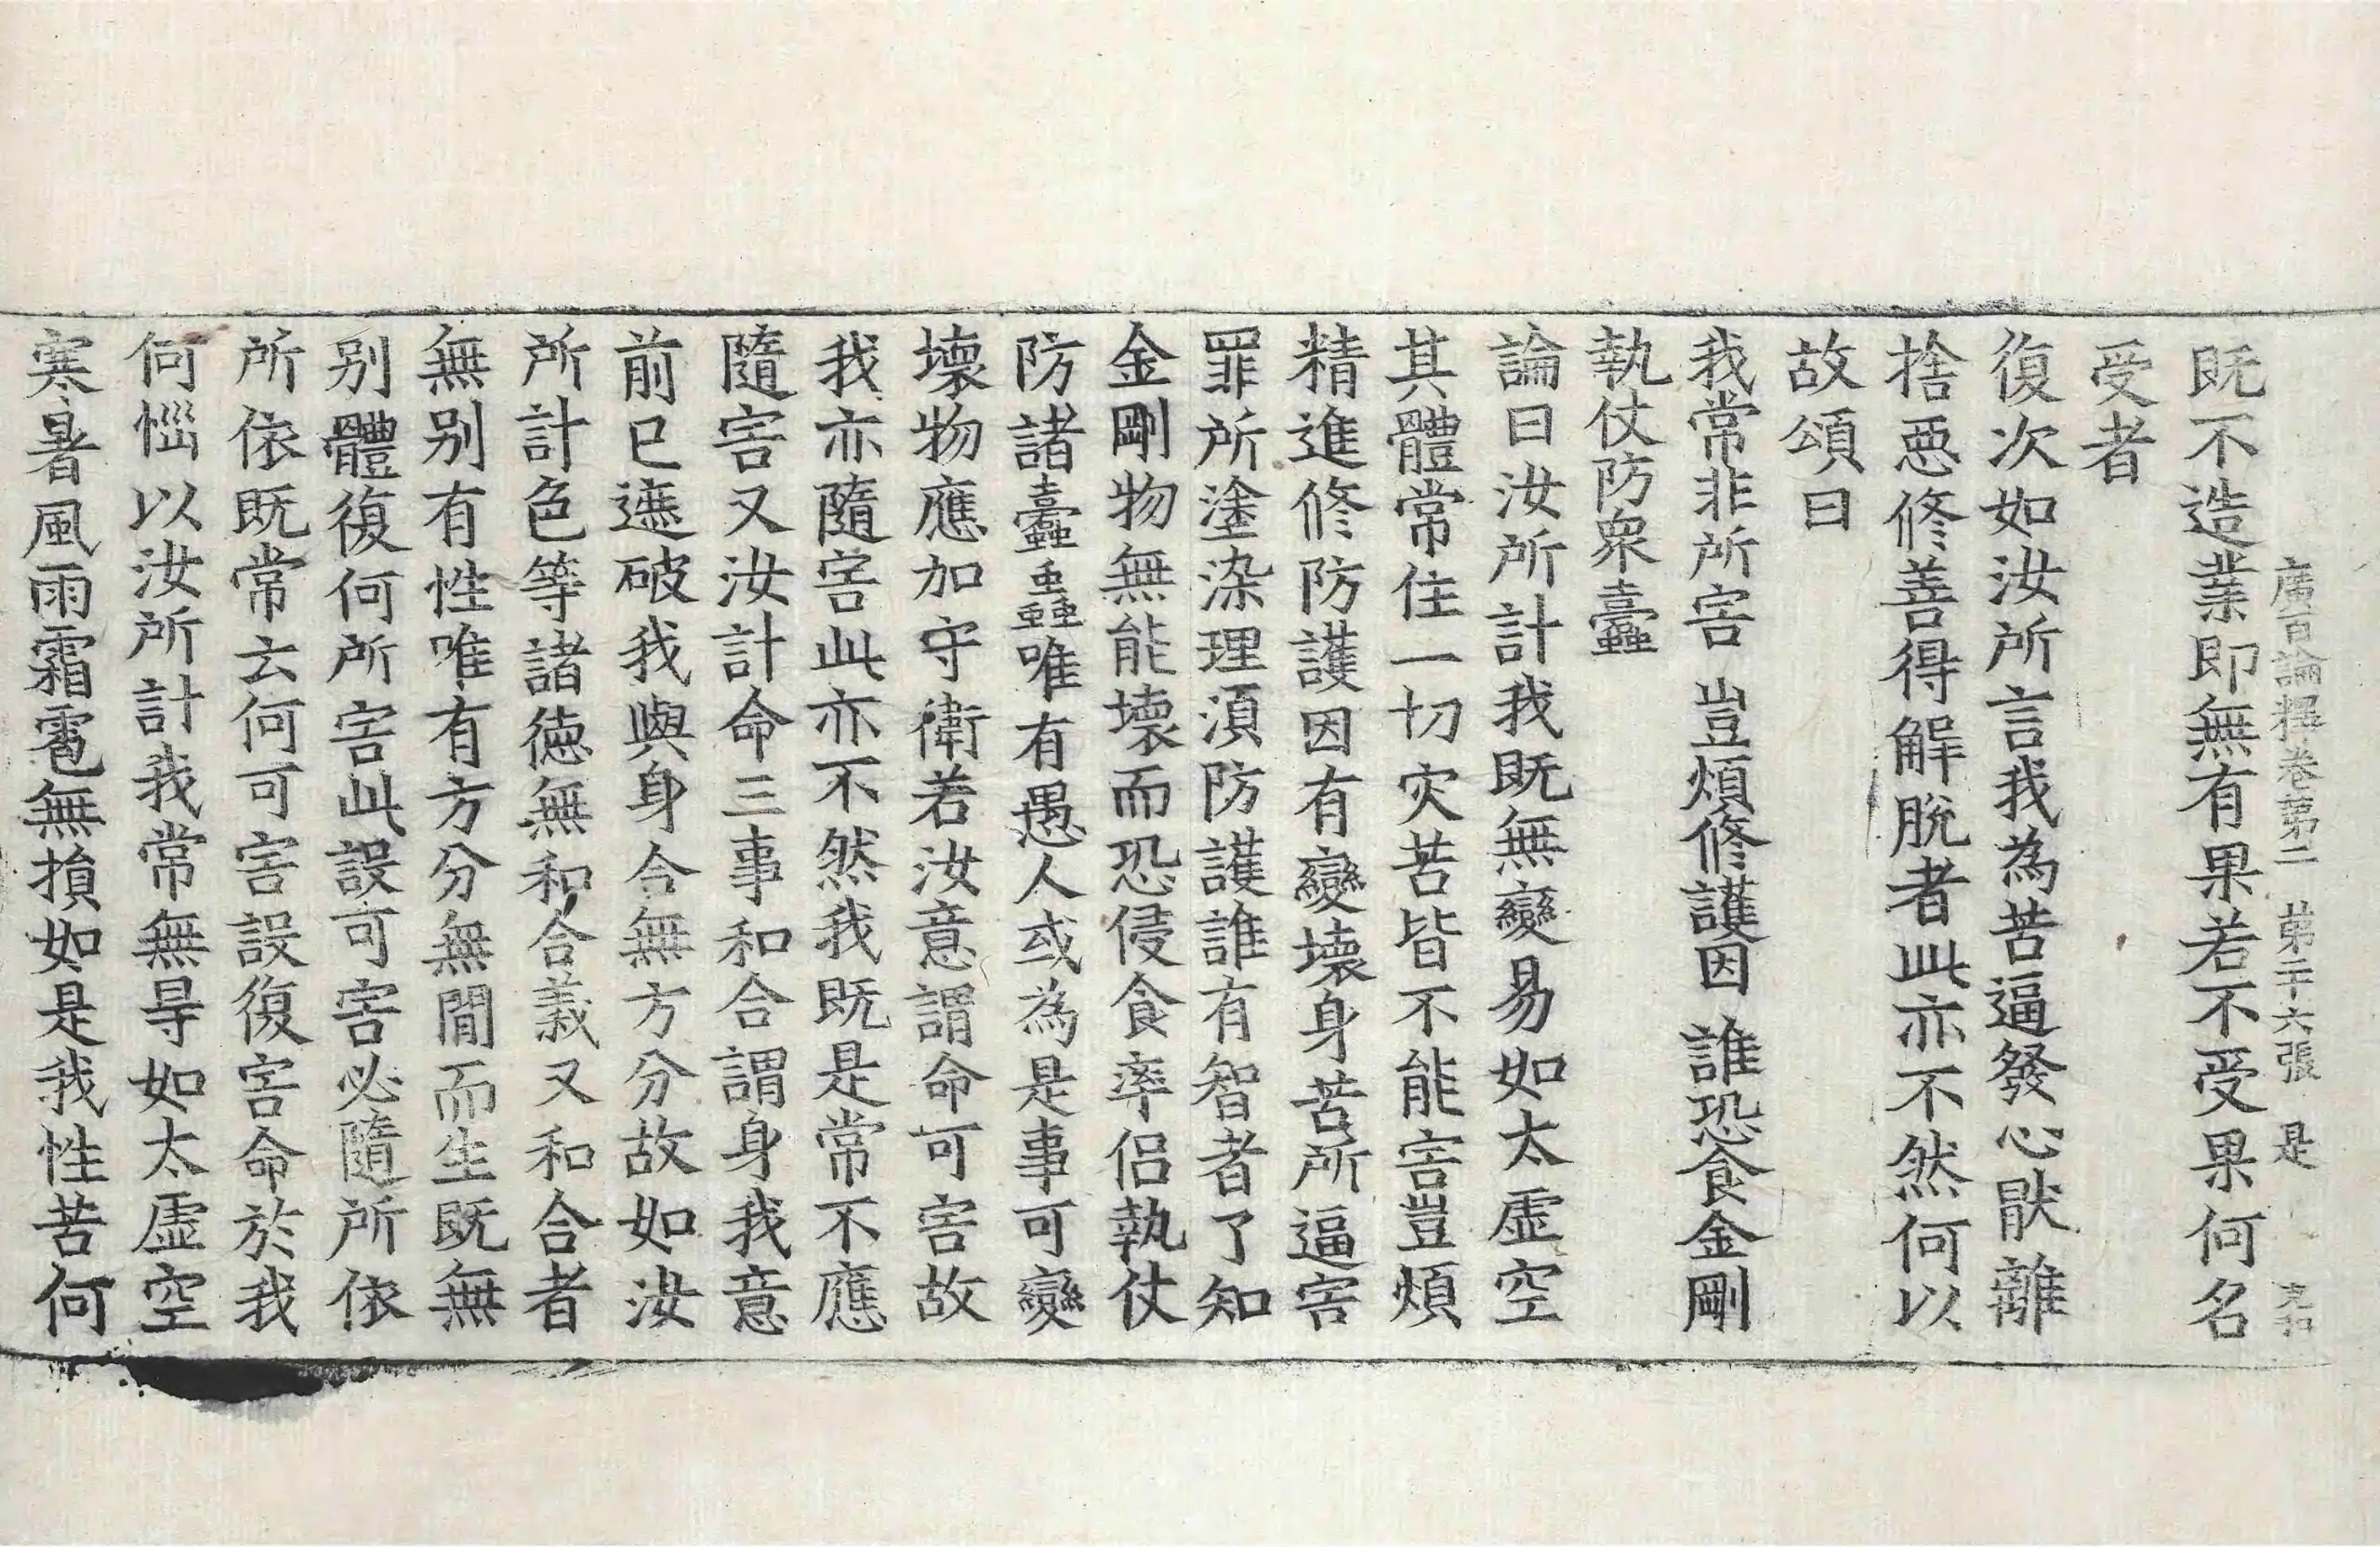 廣百論釋卷第二 第二十六張 是
既不造業即無有果若不受果何名
受者
復次如汝所言我為苦逼發心猒離
捨惡修善得解脫者此亦不然何以
故頌曰
我常非所害 豈煩修護因 誰恐食金剛
執仗防眾蠹
論曰汝所計我既無變易如太虛空
其體常住一切灾苦皆不能害豈煩
精進修防護因有變壞身苦所逼害
罪所塗染理須防護誰有智者了知
金剛物無能壞而恐侵食率侶執仗
防諸蠹蟲唯有愚人或為是事可變
壞物應加守衛若汝意謂命可害故
我亦隨害此亦不然我既是常不應
隨害又汝計命三事和合謂身我意
前已遮破我與身合無方分故如汝
所計色等諸德無和合義又和合者
無別有性唯有方分無間而生既無
別體復何所害此設可害必隨所依
所依既常云何可害設復害命於我
何惱以汝所計我常無㝵如太虛空
寒暑風雨霜雹無損如是我性苦何